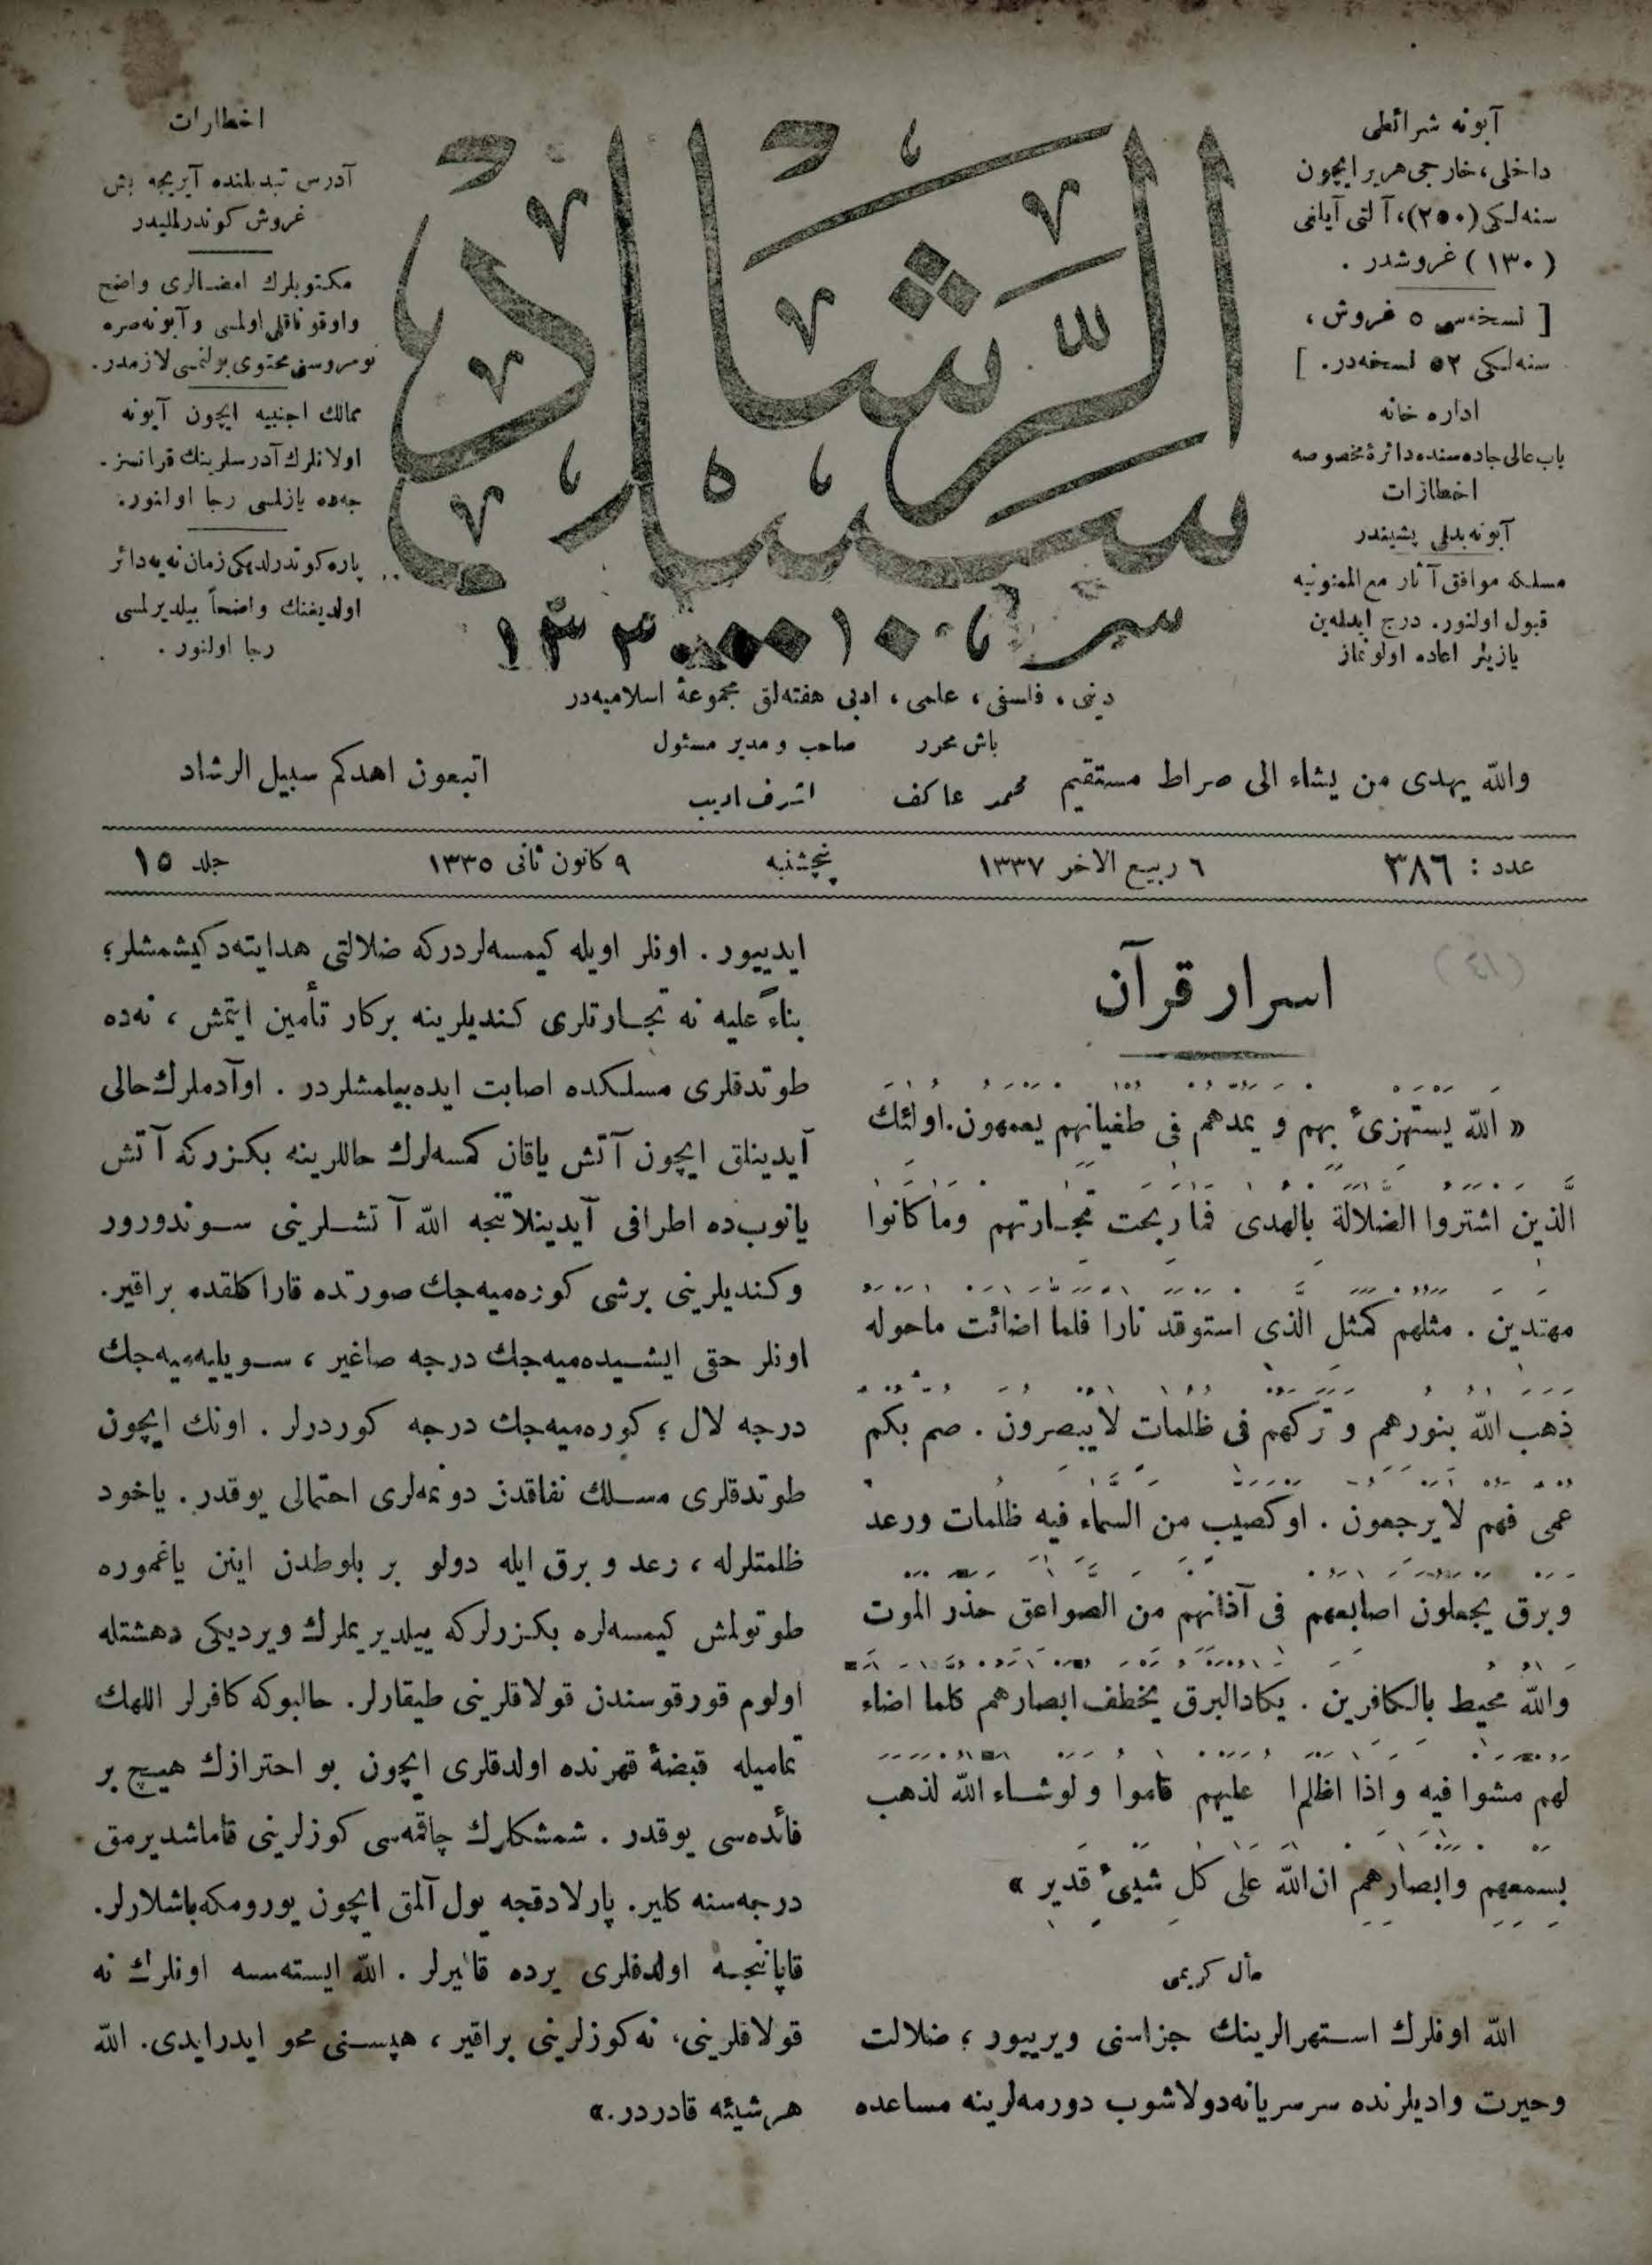 آبونه شرائطی
داخلی، خارجی هر یر ایچون
سنه‌لکی (٢٥٠)، آلتی آیلغی
(١٣٠) غروشدر .
[ نسخه‌سی ٥ غروش ،
سنه‌لکی ٥٢ نسخه‌در. ]
اداره خانه
باب عالی جاده‌سنده دائرهٔ مخصوصه
اخطارات
آبونه بدلی پشیندر
مسلکه موافق آثار مع الممنونیه
قبول اولنور. درج ایدلمه‌ین
یازیلر اعاده اولونماز
سبیل الرشاد
اخطارات
آدرس تبدیلنده آیریجه بش
غروش کوندرلملیدر
مکتوبلرك امضالری واضح
واوقوناقلی اولمسی و آبونه صره
نومروسنی محتوی بولنمسی لازمدر.
ممالك اجنبیه ایچون آبونه
اولانلرك آدرسلرینك فرانسز-
جه‌ده یازلمسی رجا اولنور.
پاره کوندرلدیکی زمان نه‌یه دائر
اولدیغنك واضحاً بیلدیرلمسی
رجا اولنور .
دینی ، فلسفی ، علمی ، ادبی هفته‌لق مجموعهٔ اسلامیه‌در
باش محرر
صاحب و مدیر مسئول
والله یهدی من یشاء الی صراط مستقیم
محمد عاکف
اشرف ادیب
اتبعون اهدکم سبیل الرشاد
عدد : ٣٨٦
٦ ربیع الاخر ١٣٣٧
پنجشنبه
٩ کانون ثانی ١٣٣٥
جلد ١٥
اسرار قرآن
« الله یستهزیٔ بهم و یمدهم فی طغیانهم یعمهون. اولئك
الذین اشتروا الضلالة بالهدی فما ربحت تجارتهم وما کانوا
مهتدین . مثلهم کمثل الذی استوقد نارا فلما اضائت ماحوله
ذهب الله بنورهم و ترکهم فی ظلمات لایبصرون . صم بکم
عمی فهم لا یرجعون . او کصیب من السماء فیه ظلمات ورعد
و برق یجعلون اصابعهم فی آذانهم من الصواعق حذر الموت
والله محیط بالکافرین . یکاد البرق یخطف ابصارهم کلما اضاء
لهم مشوا فیه و اذا اظلم علیهم قاموا و لو شاء الله لذهب
بسمعهم وابصارهم ان الله علی کل شیٔ قدیر »
مأل کریمی
الله اونلرك استهزالرینك جزاسنی ویرییور ؛ ضلالت
وحیرت وادیلرنده سرسریانه دولاشوب دورمه‌لرینه مساعده
ایدییور . اونلر اویله کیمسه‌لردرکه ضلالتی هدایته دکیشمشلر؛
بناءً علیه نه تجارتلری کندیلرینه برکار تأمین ایتمش ، نه‌ده
طوتدقلری مسلکده اصابت ایده‌بیلمشلردر . اوآدملرك حالی
آیدینلق ایچون آتش یاقان کمسه‌لرك حاللرینه بکزرکه آتش
یانوب‌ده اطرافی آیدینلاتنجه الله آتشلرینی سوندورور
وکندیلرینی برشی کوره‌میه‌جك صورتده قارا کلقده براقیر.
اونلر حقی ایشیده‌میه‌جك درجه صاغیر ، سویلیه‌میه‌جك
درجه لال ؛ کوره‌میه‌جك درجه کوردرلر . اونك ایچون
طوتدقلری مسلك نفاقدن دونمه‌لری احتمالی یوقدر . یاخود
ظلمتلرله ، رعد و برق ایله دولو بر بلوطدن اینن یاغموره
طوتولمش کیمسه‌لره بکزرلرکه ییلدیریملرك ویردیکی دهشتله
اولوم قورقوسندن قولاقلرینی طیقارلر. حالبوکه کافرلر اللهك
تمامیله قبضهٔ قهرنده اولدقلری ایچون بو احترازك هیچ بر
فائده‌سی یوقدر . شمشکلرك چاقمه‌سی کوزلرینی قاماشدیرمق
درجه‌سنه کلیر. پارلادقجه یول آلمق ایچون یورومکه باشلارلر.
قاپاننجه اولدقلری یرده قالیرلر . الله ایسته‌سه اونلرك نه
قولاقلرینی، نه کوزلرینی براقیر ، هپسنی محو ایدرایدی. الله
هرشیئه قادردر.»